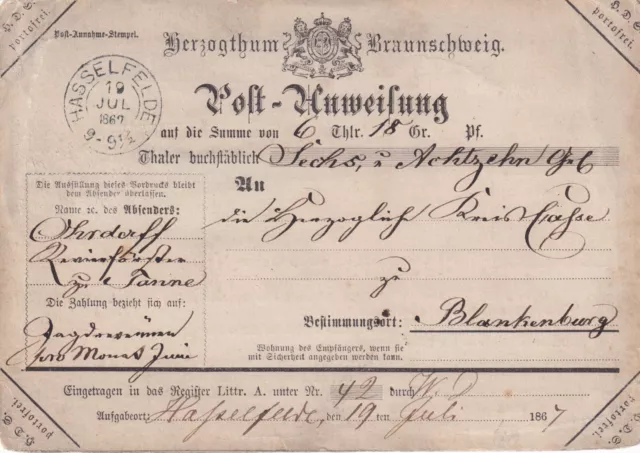 H. D. S.
portofrei.
H. D. S.
portofrei.
Post-Annahme-Stempel.
Herzogthum Braunschweig.
HASSELFELDE
19
JUL
1867
9-9½
Post-Anweisung
auf die Summe von 6 Thlr. 18 Gr. Pf.
Thaler buchstäblich Sechs, u Achtzehn Gr
An
die Herzogliche Kreis Casse
zu
Bestimmungsort: Blankenburg
Wohnung des Empfängers, wenn sie
mit Sicherheit angegeben werden kann.
Die Ausfüllung dieses Vordrucks bleibt
dem Absender überlassen.
Name ꝛc. des Absenders:
Ohrdorff
Revierförster
zu Tanne
Die Zahlung bezieht sich auf:
pro Monat Juni
Eingetragen in das Register Littr. A. unter Nr. 42 durch W. D
Aufgabeort: Hasselfelde, den 19 ten Juli 1867
H. D. S.
portofrei.
H. D. S.
portofrei.